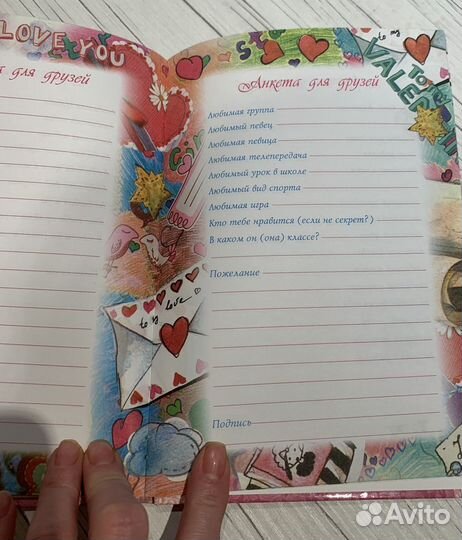 LOVE YOU
а для друзей
to my
VALE
TO
Анкета для друзей
Любимая группа
Любимый певец
Любимая певица
Любимая телепередача
Любимый урок в школе
Любимый вид спорта
Любимая игра
Кто тебе нравится (если не секрет?)
В каком он (она) классе?
Пожелание
to my love
Подпись
Avito